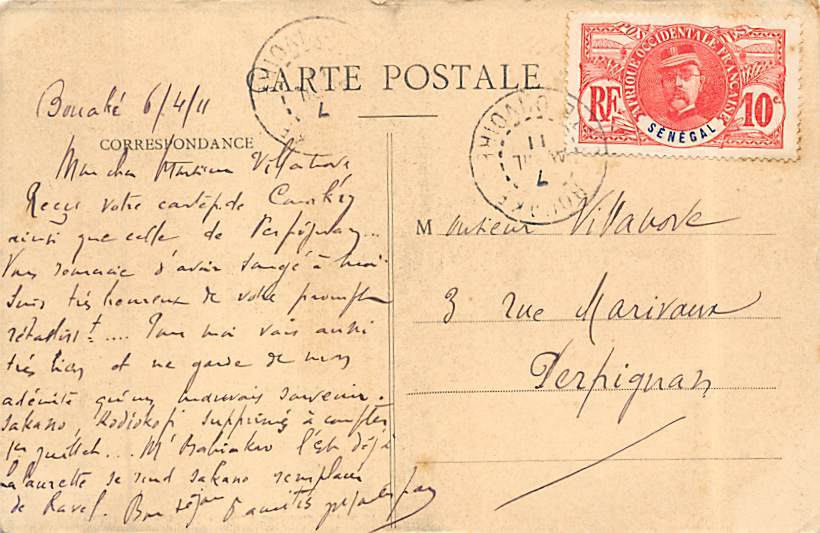 CARTE POSTALE
CORRESPONDANCE
Bouaké 6/4/11
Mon cher Monsieur Villanove
Reçu votre carte de
ainsi que celle de Perpignan...
Vous remercie d'avoir songé à moi
suis très heureux de votre prompt
rétabliss^t.... Pour moi vais aussi
très bien et ne garde de mon
qu'un mauvais souvenir.
Sakano, Kodiokofi supprimés à compter
1er juillet... M' l'est déjà
se rend Sakano remplacer
de Ravel. Bon séjour & amitiés
POSTES
AFRIQUE OCCIDENTALE FRANÇAISE
RF
10c
SÉNÉGAL
BOUAKÉ
7
11
Monsieur Villanove
3 rue Marivaux
Perpignan